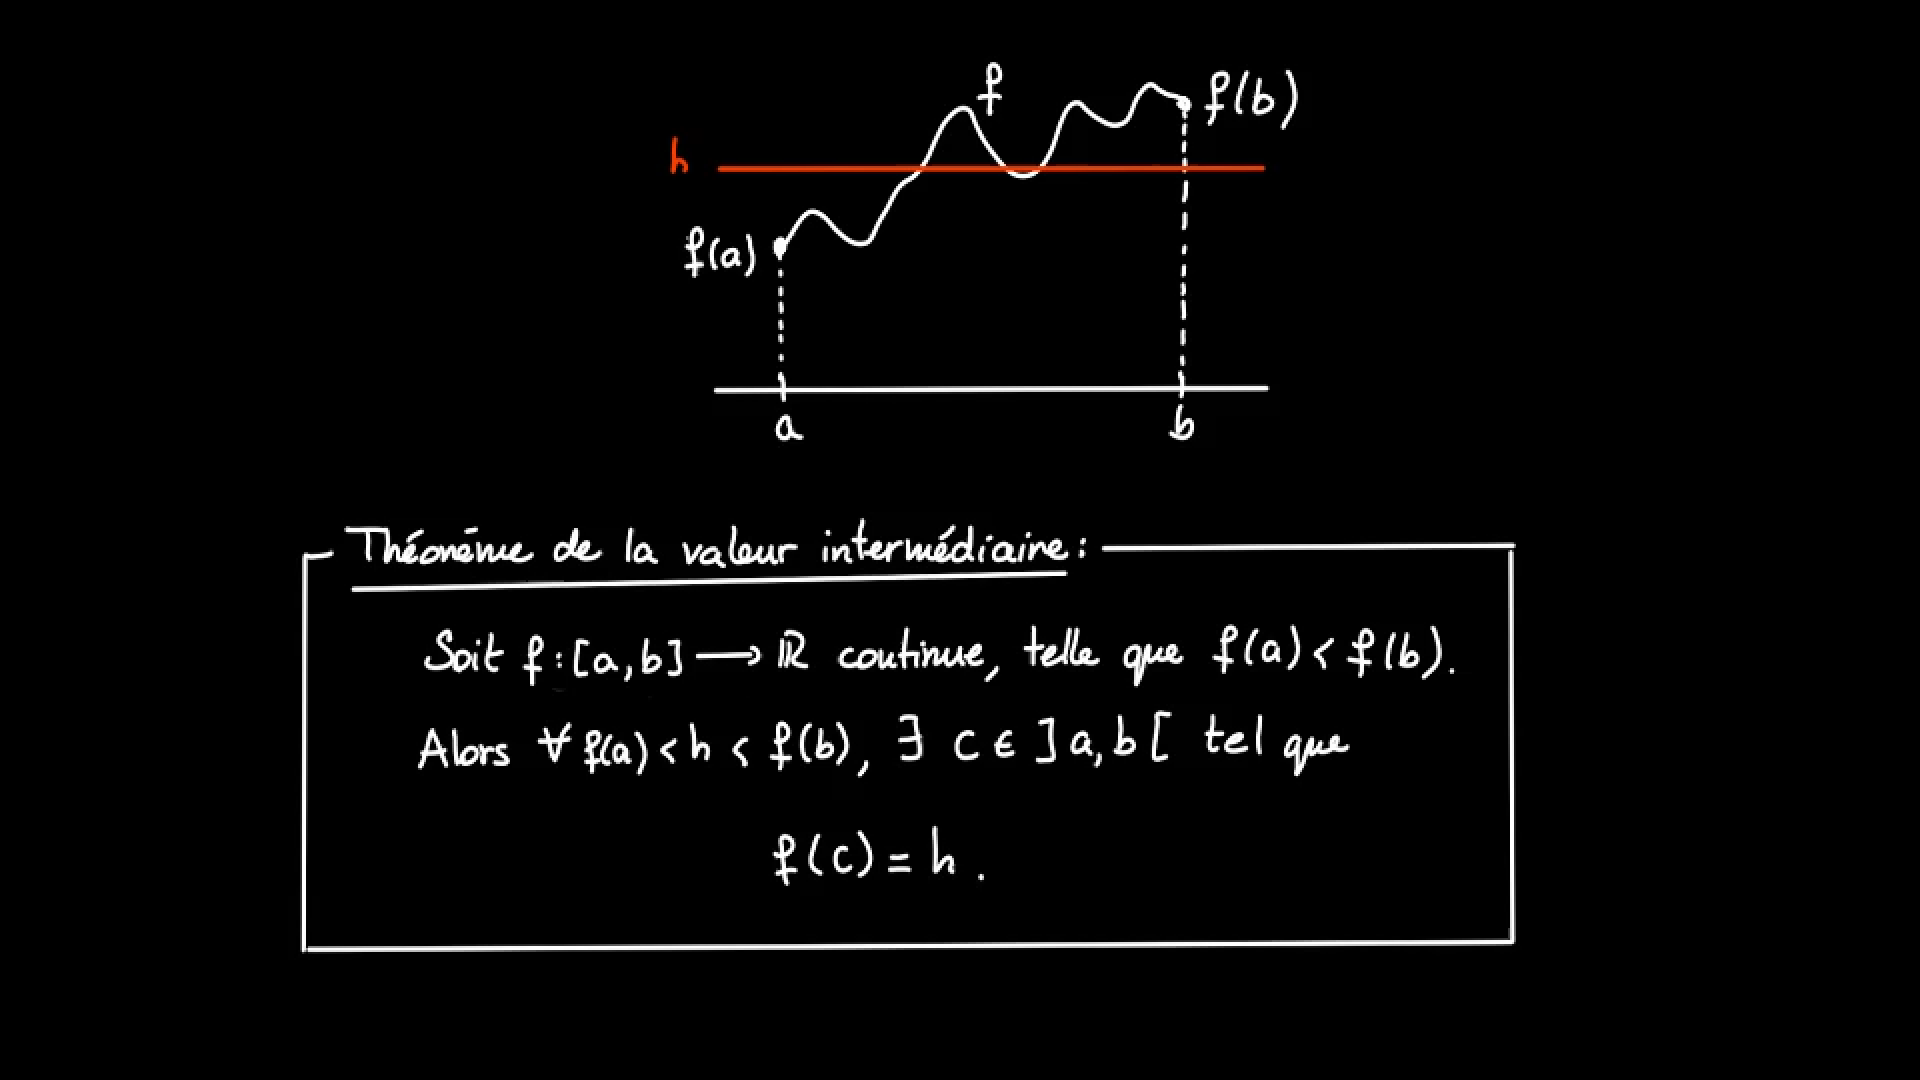 f
f(b)
h
f(a)
a
b
Théorème de la valeur intermédiaire :
Soit f : [a,b] ⟶ ℝ continue, telle que f(a) < f(b).
Alors ∀ f(a) < h < f(b), ∃ c ∈ ]a,b[ tel que
f(c) = h .